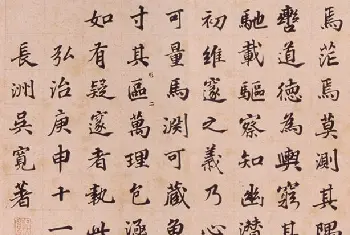 焉茫焉莫測其隅
轡道德為輿窮其
馳載驅察知幽潛
初維邃之義乃心
可量焉淵可藏魚
寸其區萬理包
如有疑邃者執此
弘治庚申十一
長洲吳寬著